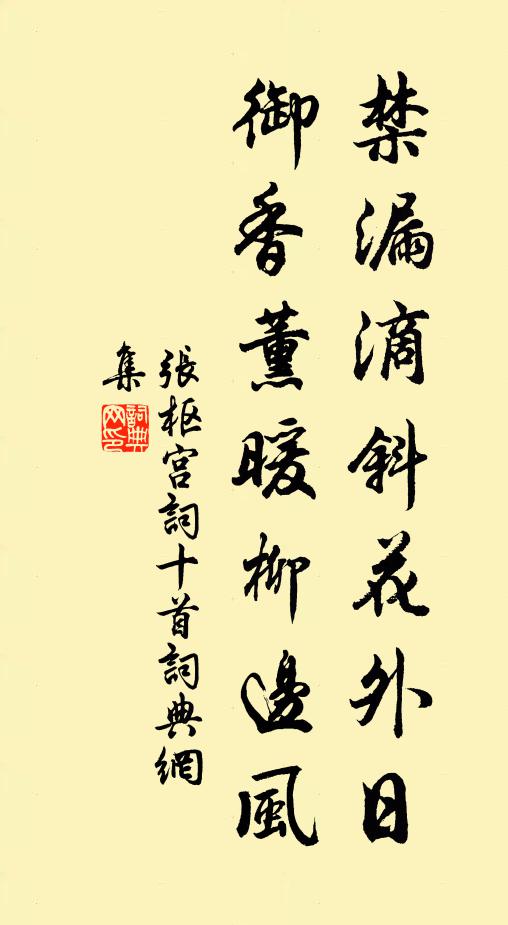 禁漏滴斜花外日
御香薰暖柳邊風
張枢宫詞十首詞典網
集
詞典
网印